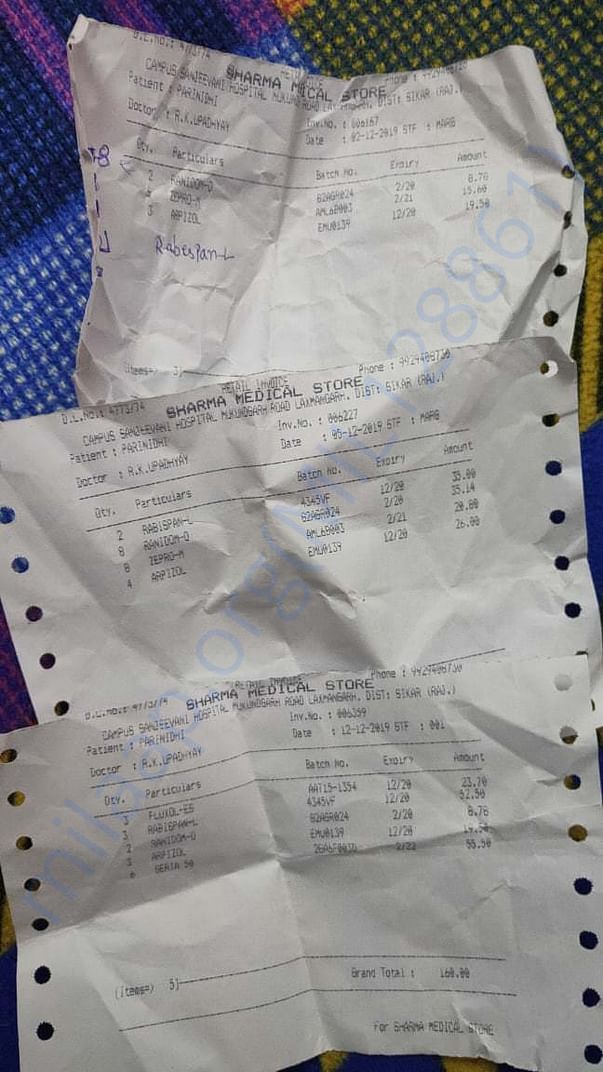 D.L.No.: 4773/74 Phone : 9929408730
SHARMA MEDICAL STORE
CAMPUS SANJEEVANI HOSPITAL MUKUNDGARH ROAD LAXMANGARH, DIST: SIKAR (RAJ.)
Patient : PARINIDHI Inv.No. : 006167
Doctor : R.K.UPADHYAY Date : 02-12-2019 STF : MARG
Qty. Particulars Batch No. Expiry Amount
2 RANIDOM-O 62AGR024 2/20 8.78
ZEPRO-M AML6B003 2/21 15.60
3 ARPIZOL EMU0139 12/20 19.50
Rabespan-L
(items=> 3)
RETAIL INVOICE
D.L.No.: 4773/74 Phone : 9929408730
SHARMA MEDICAL STORE
CAMPUS SANJEEVANI HOSPITAL MUKUNDGARH ROAD LAXMANGARH, DIST: SIKAR (RAJ.)
Patient : PARINIDHI Inv.No. : 006227
Doctor : R.K.UPADHYAY Date : 05-12-2019 STF : MARG
Qty. Particulars Batch No. Expiry Amount
2 RABISPAN-L 4345VF 12/20 35.00
8 RANIDOM-O 62AGR024 2/20 35.14
8 ZEPRO-M AML6B003 2/21 20.80
4 ARPIZOL EMU0139 12/20 26.00
RETAIL INVOICE
D.L.No.: 4773/74 Phone : 9929408730
SHARMA MEDICAL STORE
CAMPUS SANJEEVANI HOSPITAL MUKUNDGARH ROAD LAXMANGARH, DIST: SIKAR (RAJ.)
Patient : PARINIDHI Inv.No. : 006359
Doctor : R.K.UPADHYAY Date : 12-12-2019 STF : 001
Qty. Particulars Batch No. Expiry Amount
3 FLUXOL-ES AAT15-1354 12/20 23.70
3 RABISPAN-L 4345VF 12/20 52.50
2 RANIDOM-O 62AGR024 2/20 8.78
3 ARPIZOL EMU0139 12/20 19.50
6 SERTA 50 2/22 55.50
(items=> 5) Grand Total : 160.00
For SHARMA MEDICAL STORE